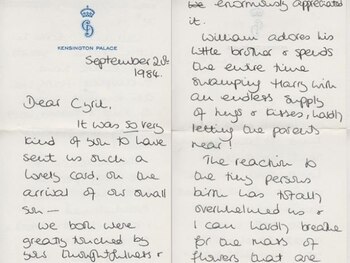 KENSINGTON PALACE
September 20th
1984.
Dear Cyril,
It was so very
kind of you to have
sent us such a
lovely card, on the
arrival of our small
son —
We both were
greatly touched by
your thoughtfulness &
enormously appreciated
it.
William adores his
little brother & spends
the entire time
swamping Harry with
an endless supply
of hugs & kisses, hardly
letting the parents
near!
The reaction to
one tiny persons
birth has totally
overwhelmed us &
I can hardly breathe
for the mass of
flowers that are